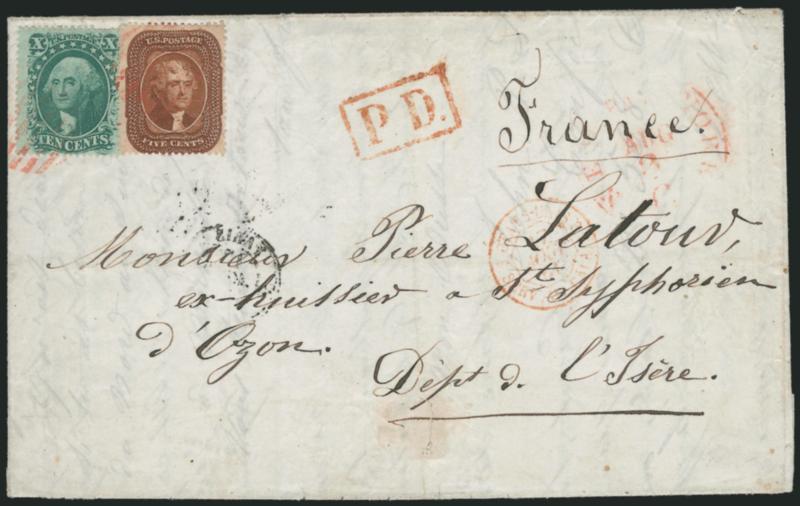 X X
U.S. POSTAGE
TEN CENTS
U.S. POSTAGE
FIVE CENTS
P. D.
France.
AUG
Monsieur Pierre Latour,
ex-huissier a St Syphorien
d'Ozon.
Dépt d. l'Isère.